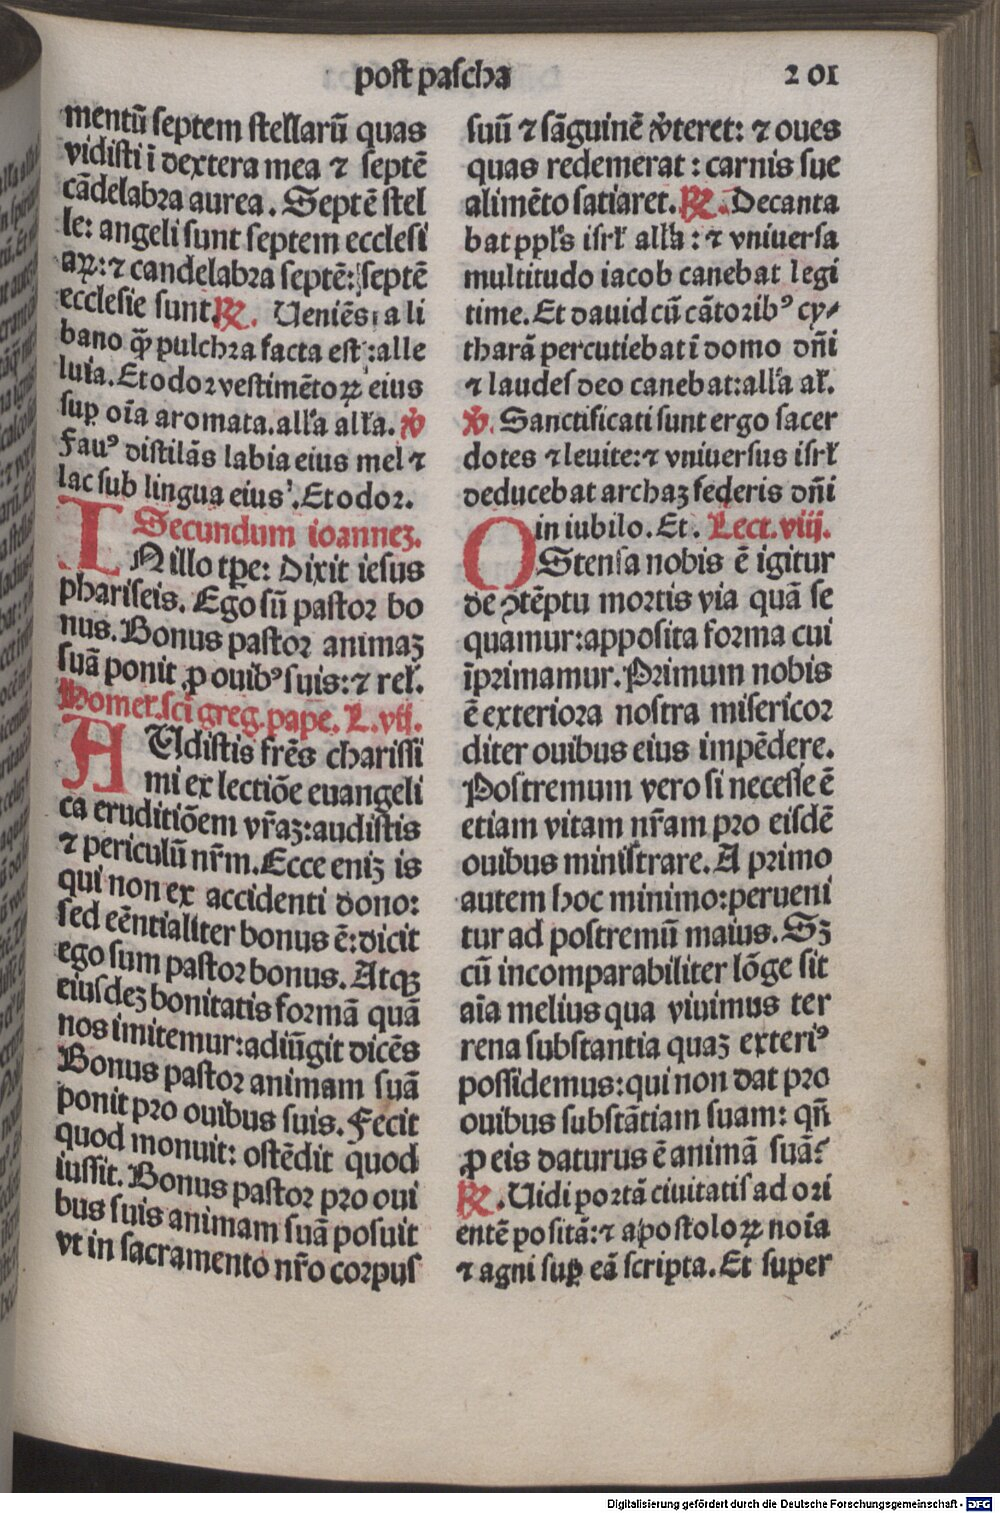 post pascha
201
mentū septem stellarū quas
vidisti ī dextera mea ⁊ septē
cādelabra aurea. Septē stel
le: angeli sunt septem ecclesi
aꝝ: ⁊ candelabra septē: septē
ecclesie sunt. ℟. Ueniēs a li
bano q̄ꝫ pulchra facta est: alle
luia. Et odor vestimētoꝝ eius
suꝑ oīa aromata. alľa alľa. ℣
Fauꝰ distilās labia eius mel ⁊
lac sub lingua eius. Et odor.
Secundum ioanneꝫ.
IN illo tꝑe: Dixit iesus
phariseis. Ego sū pastor bo
nus. Bonus pastor animaꝫ
suā ponit ꝓ ouibꝰ suis: ⁊ reł.
Homeł. sci greg. pape. L. vij.
AUdistis fr̄es charissi
mi ex lectiōe euangeli
ca eruditiōem vr̄aꝫ: audistis
⁊ periculū nr̄m. Ecce eniꝫ is
qui non ex accidenti dono:
sed eēntialiter bonus ē: dicit
ego sum pastor bonus. Atqꝫ
eiusdeꝫ bonitatis formā quā
nos imitemur: adiūgit dicēs
Bonus pastor animam suā
ponit pro ouibus suis. Fecit
quod monuit: ostēdit quod
iussit. Bonus pastor pro oui
bus suis animam suā posuit
vt in sacramento nr̄o corpus
suū ⁊ sāguinē ꝟteret: ⁊ oues
quas redemerat: carnis sue
alimēto satiaret. ℟. Decanta
bat ppľs isrł alľa: ⁊ vniuersa
multitudo iacob canebat legi
time. Et dauid cū cātoribꝰ cy⸗
tharā percutiebat ī domo dn̄i
⁊ laudes deo canebat: alľa ał.
℣. Sanctificati sunt ergo sacer
dotes ⁊ leuite: ⁊ vniuersus isrł
deducebat archaꝫ federis dn̄i
in iubilo. Et. Lect. viij.
OStensa nobis ē igitur
de ꝯtēptu mortis via quā se
quamur: apposita forma cui
īprimamur. Primum nobis
ē exteriora nostra misericor
diter ouibus eius impēdere.
Postremum vero si necesse ē
etiam vitam nr̄am pro eisdē
ouibus ministrare. A primo
autem hoc minimo: perueni
tur ad postremū maius. Sꝫ
cū incomparabiliter lōge sit
aīa melius qua viuimus ter
rena substantia quaꝫ exteriꝰ
possidemus: qui non dat pro
ouibus substātiam suam: qn̄
ꝓ eis daturus ē animā suā?
℟. Uidi portā ciuitatis ad ori
entē positā: ⁊ apostoloꝝ noīa
⁊ agni suꝑ eā scripta. Et super
Digitalisierung gefördert durch die Deutsche Forschungsgemeinschaft - DFG